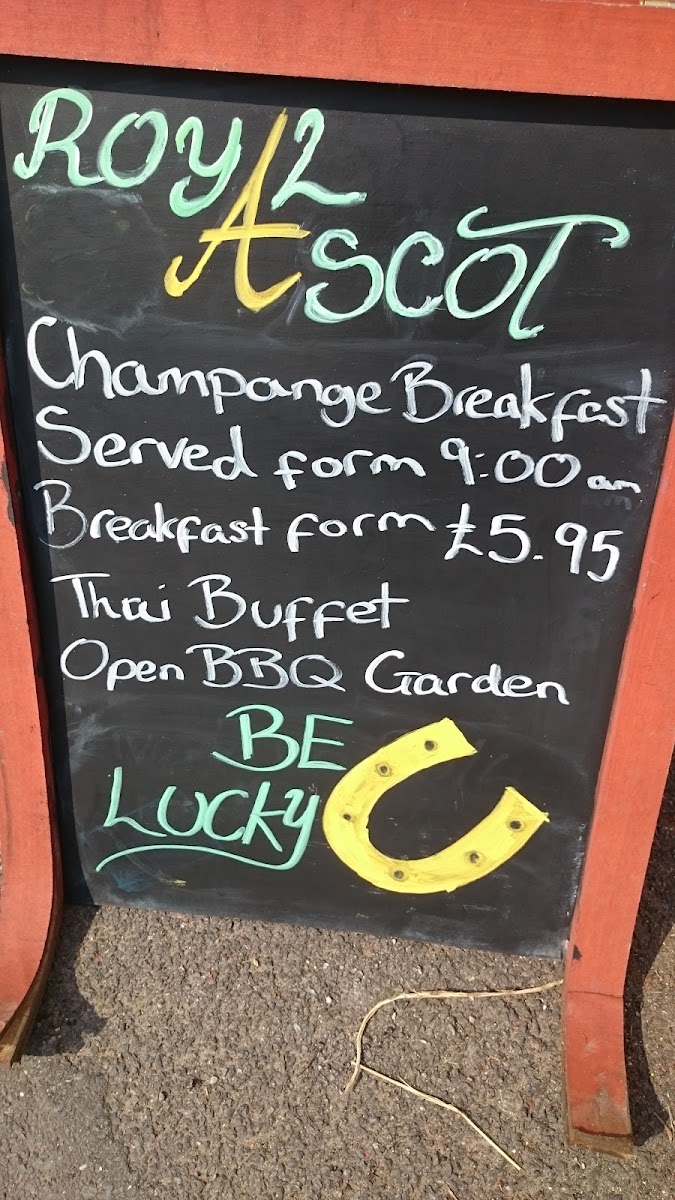 ROYAL
ASCOT
Champange Breakfast
Served form 9:00 am
Breakfast form £5.95
Thai Buffet
Open BBQ Garden
BE
LUCKY